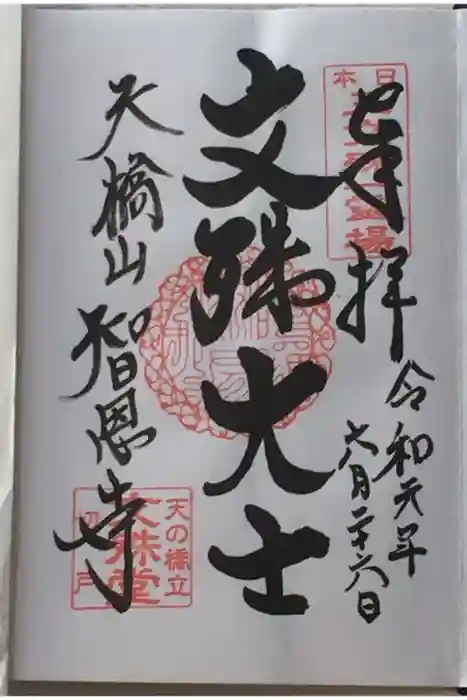 日本
三文殊霊場
奉拝
令和元年
六月二十六日
文殊大士
天橋山智恩寺
天の橋立
文殊堂
切戸